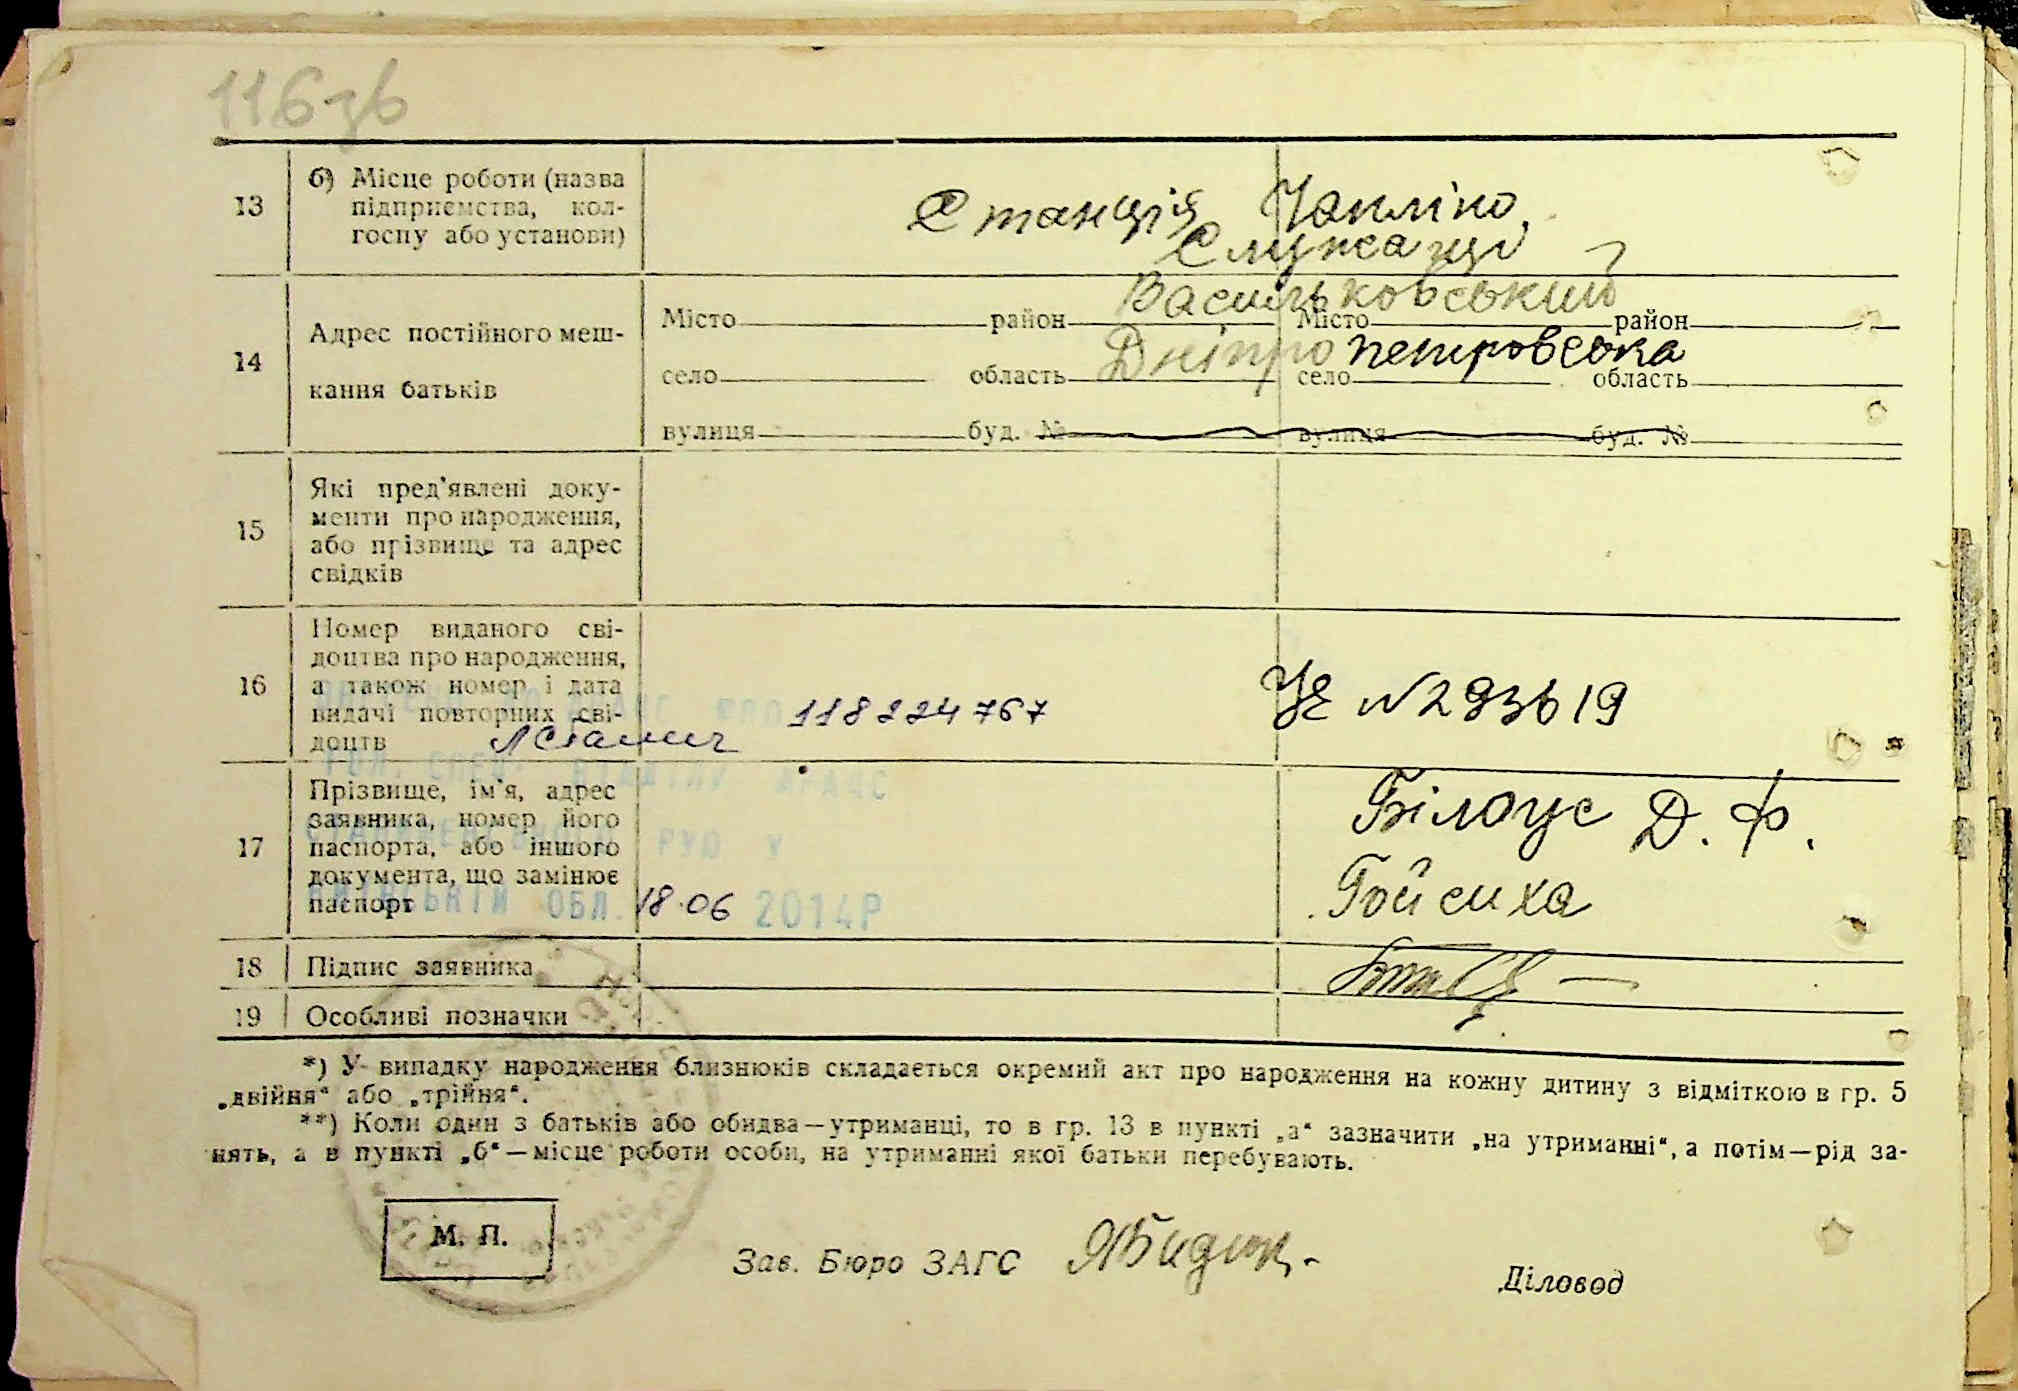 116зв
13 б) Місце роботи (назва
підприємства, кол-
госпу або установи)
Станція Чапліно,
Служащі
14 Адрес постійного меш-
кання батьків
Васильковський
Місто район Місто район
Дніпропетровська
село область село область
вулиця буд. № вулиця буд. №
15 Які пред'явлені доку-
менти про народження,
або прізвище та адрес
свідків
16 Номер виданого сві-
доцтва про народження,
а також номер і дата
видачі повторних сві-
доцтв
118224767
УЕ №293619
17 Прізвище, ім'я, адрес
заявника, номер його
паспорта, або іншого
документа, що замінює
паспорт
ГОЛ. СПЕЦ. ВІДДІЛУ ДРАЦС
РУЮ У
ОБЛ. 18.06 2014Р
Білоус Д. Ф.
Гойсиха
18 Підпис заявника
19 Особливі позначки
*) У випадку народження близнюків складається окремий акт про народження на кожну дитину з відміткою в гр. 5
„двійня“ або „трійня“.
**) Коли один з батьків або обидва—утриманці, то в гр. 13 в пункті „а“ зазначити „на утриманні“, а потім—рід за-
нять, а в пункті „б“—місце роботи особи, на утриманні якої батьки перебувають.
М. П.
Зав. Бюро ЗАГС
Діловод